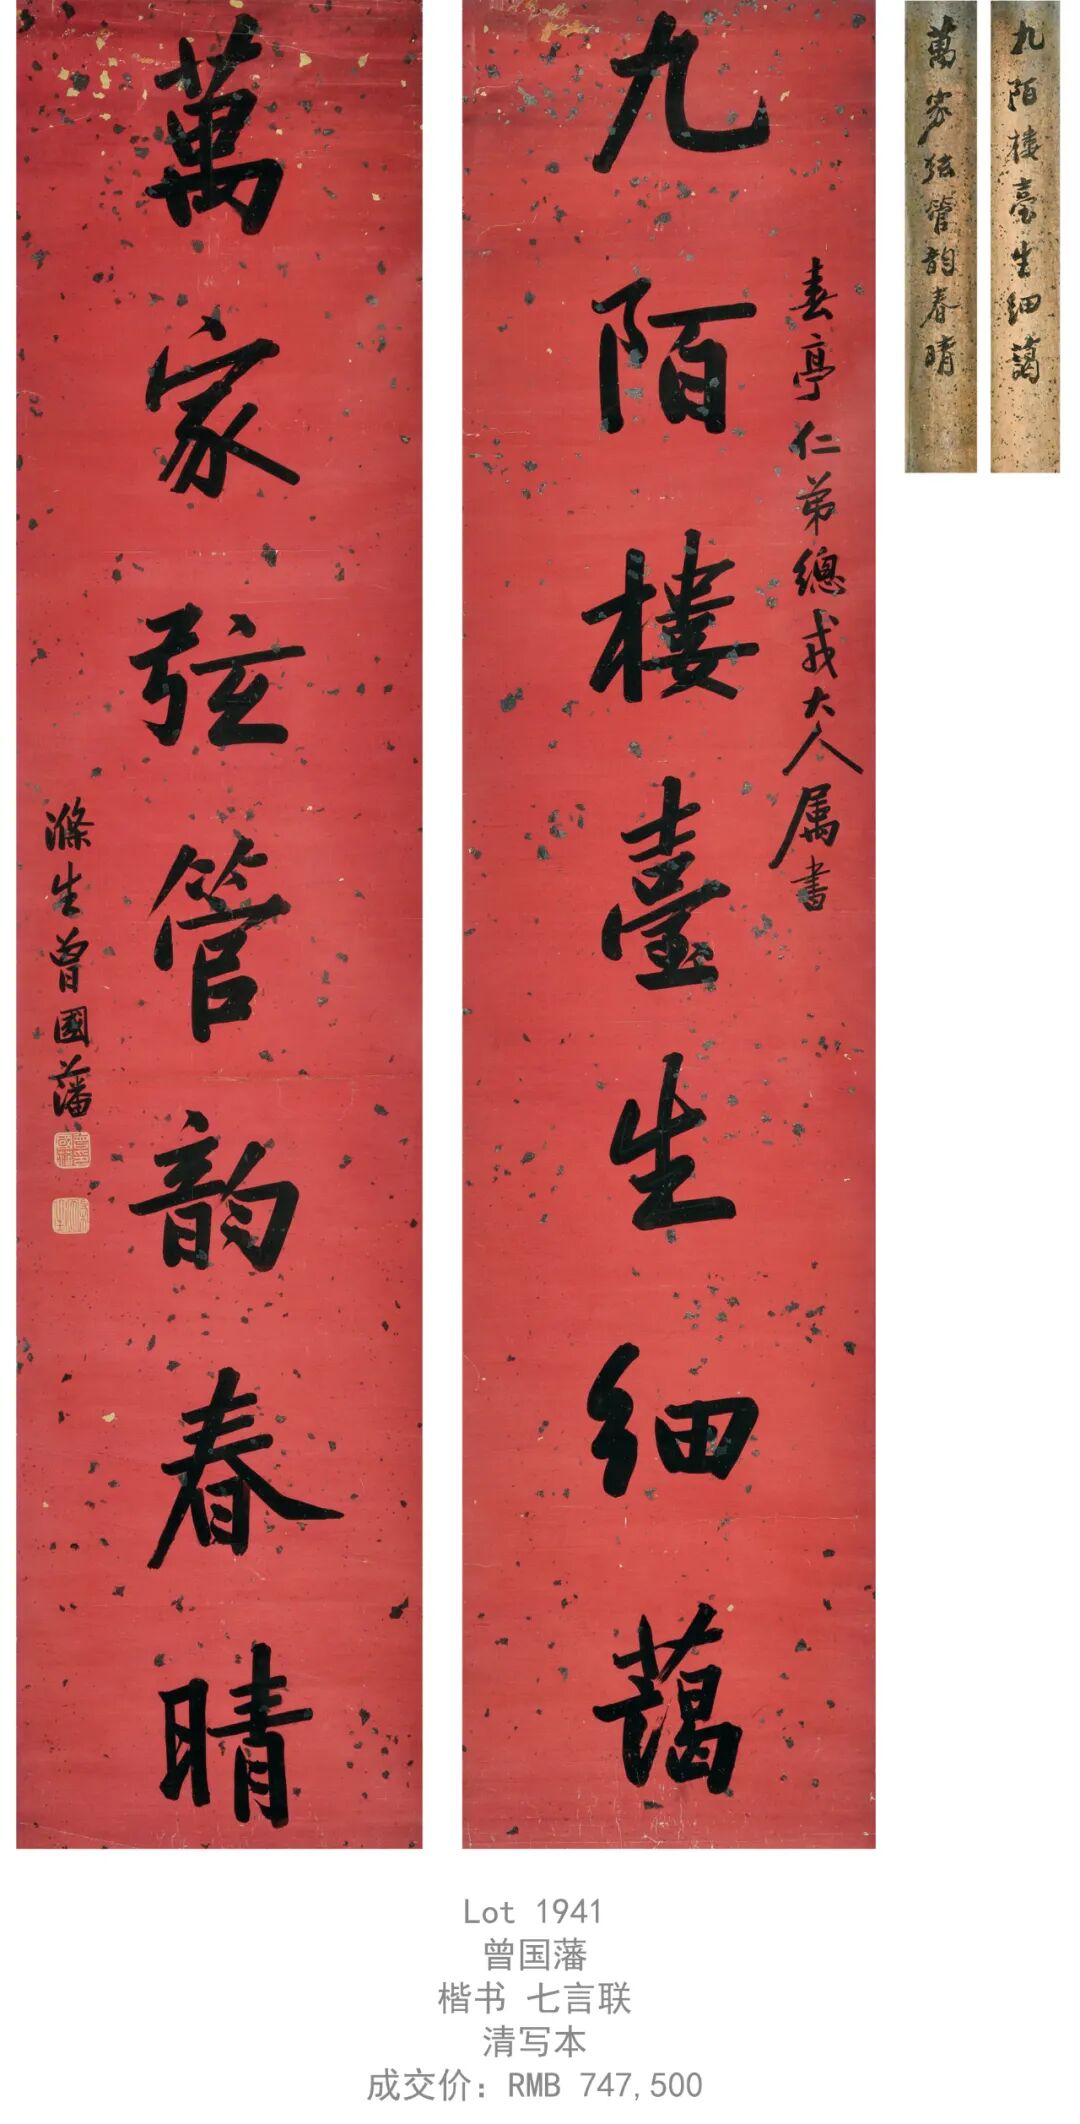 九陌樓臺生細藹
春亭仁弟總戎大人属書
萬家弦管韵春晴
滌生曾國藩
九陌樓臺生細藹
萬家弦管韵春晴
Lot 1941
曾国藩
楷书 七言联
清写本
成交价：RMB 747,500